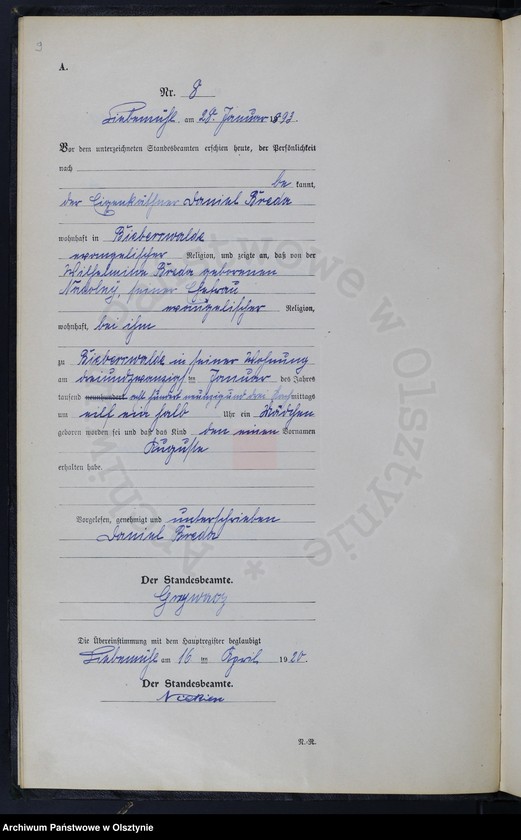 9
A.
Nr. 8
Liebemühl am 28. Januar 1893.
Vor dem unterzeichneten Standesbeamten erschien heute, der Persönlichkeit
nach
be kannt,
der Eigenkäthner Daniel Breda
wohnhaft in Bieberswalde
evangelischer Religion, und zeigte an, daß von der
Wilhelmine Breda geborenen
seiner Ehefrau
evangelischer Religion,
wohnhaft, bei ihm
zu Bieberswalde in seiner Wohnung
am dreiundzwanzigsten Januar des Jahres
tausend neunhundert acht hundert neunzig und drei mittags
um eilf ein halb Uhr ein Mädchen
geboren worden sei und daß das Kind den einen Vornamen
Auguste
erhalten habe.
Vorgelesen, genehmigt und unterschrieben
Daniel Breda
Der Standesbeamte.
Die Übereinstimmung mit dem Hauptregister beglaubigt
Liebemühl am 16 ten April 1920.
Der Standesbeamte.
N.-R.
Archiwum Państwowe w Olsztynie
Archiwum Państwowe w Olsztynie